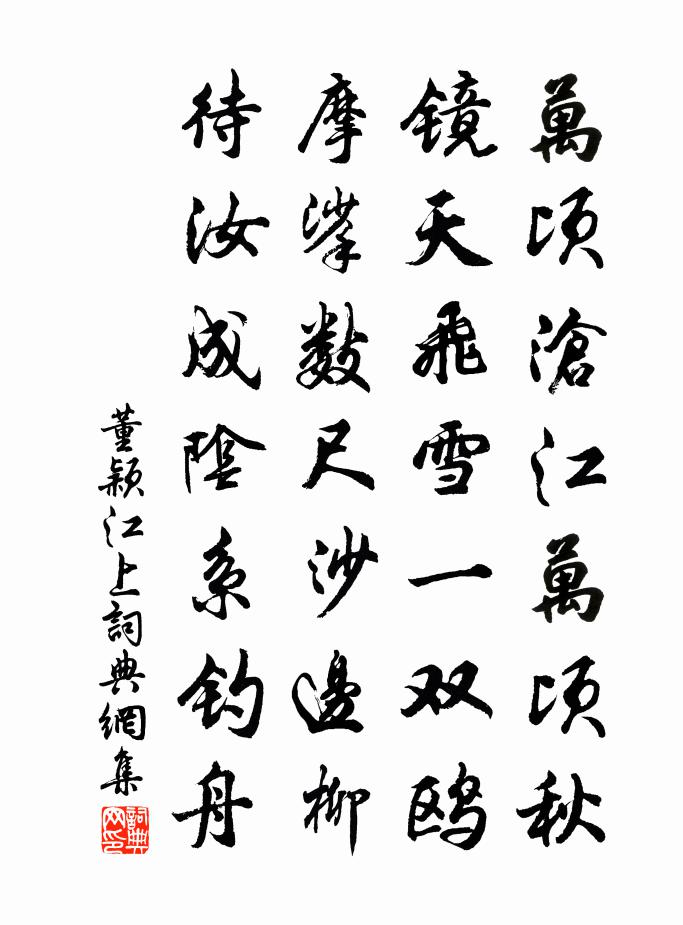 萬頃滄江萬頃秋
镜天飛雪一双鸥
摩挲數尺沙邊柳
待汝成陰系钓舟
董颖江上詞典網集
詞典网印